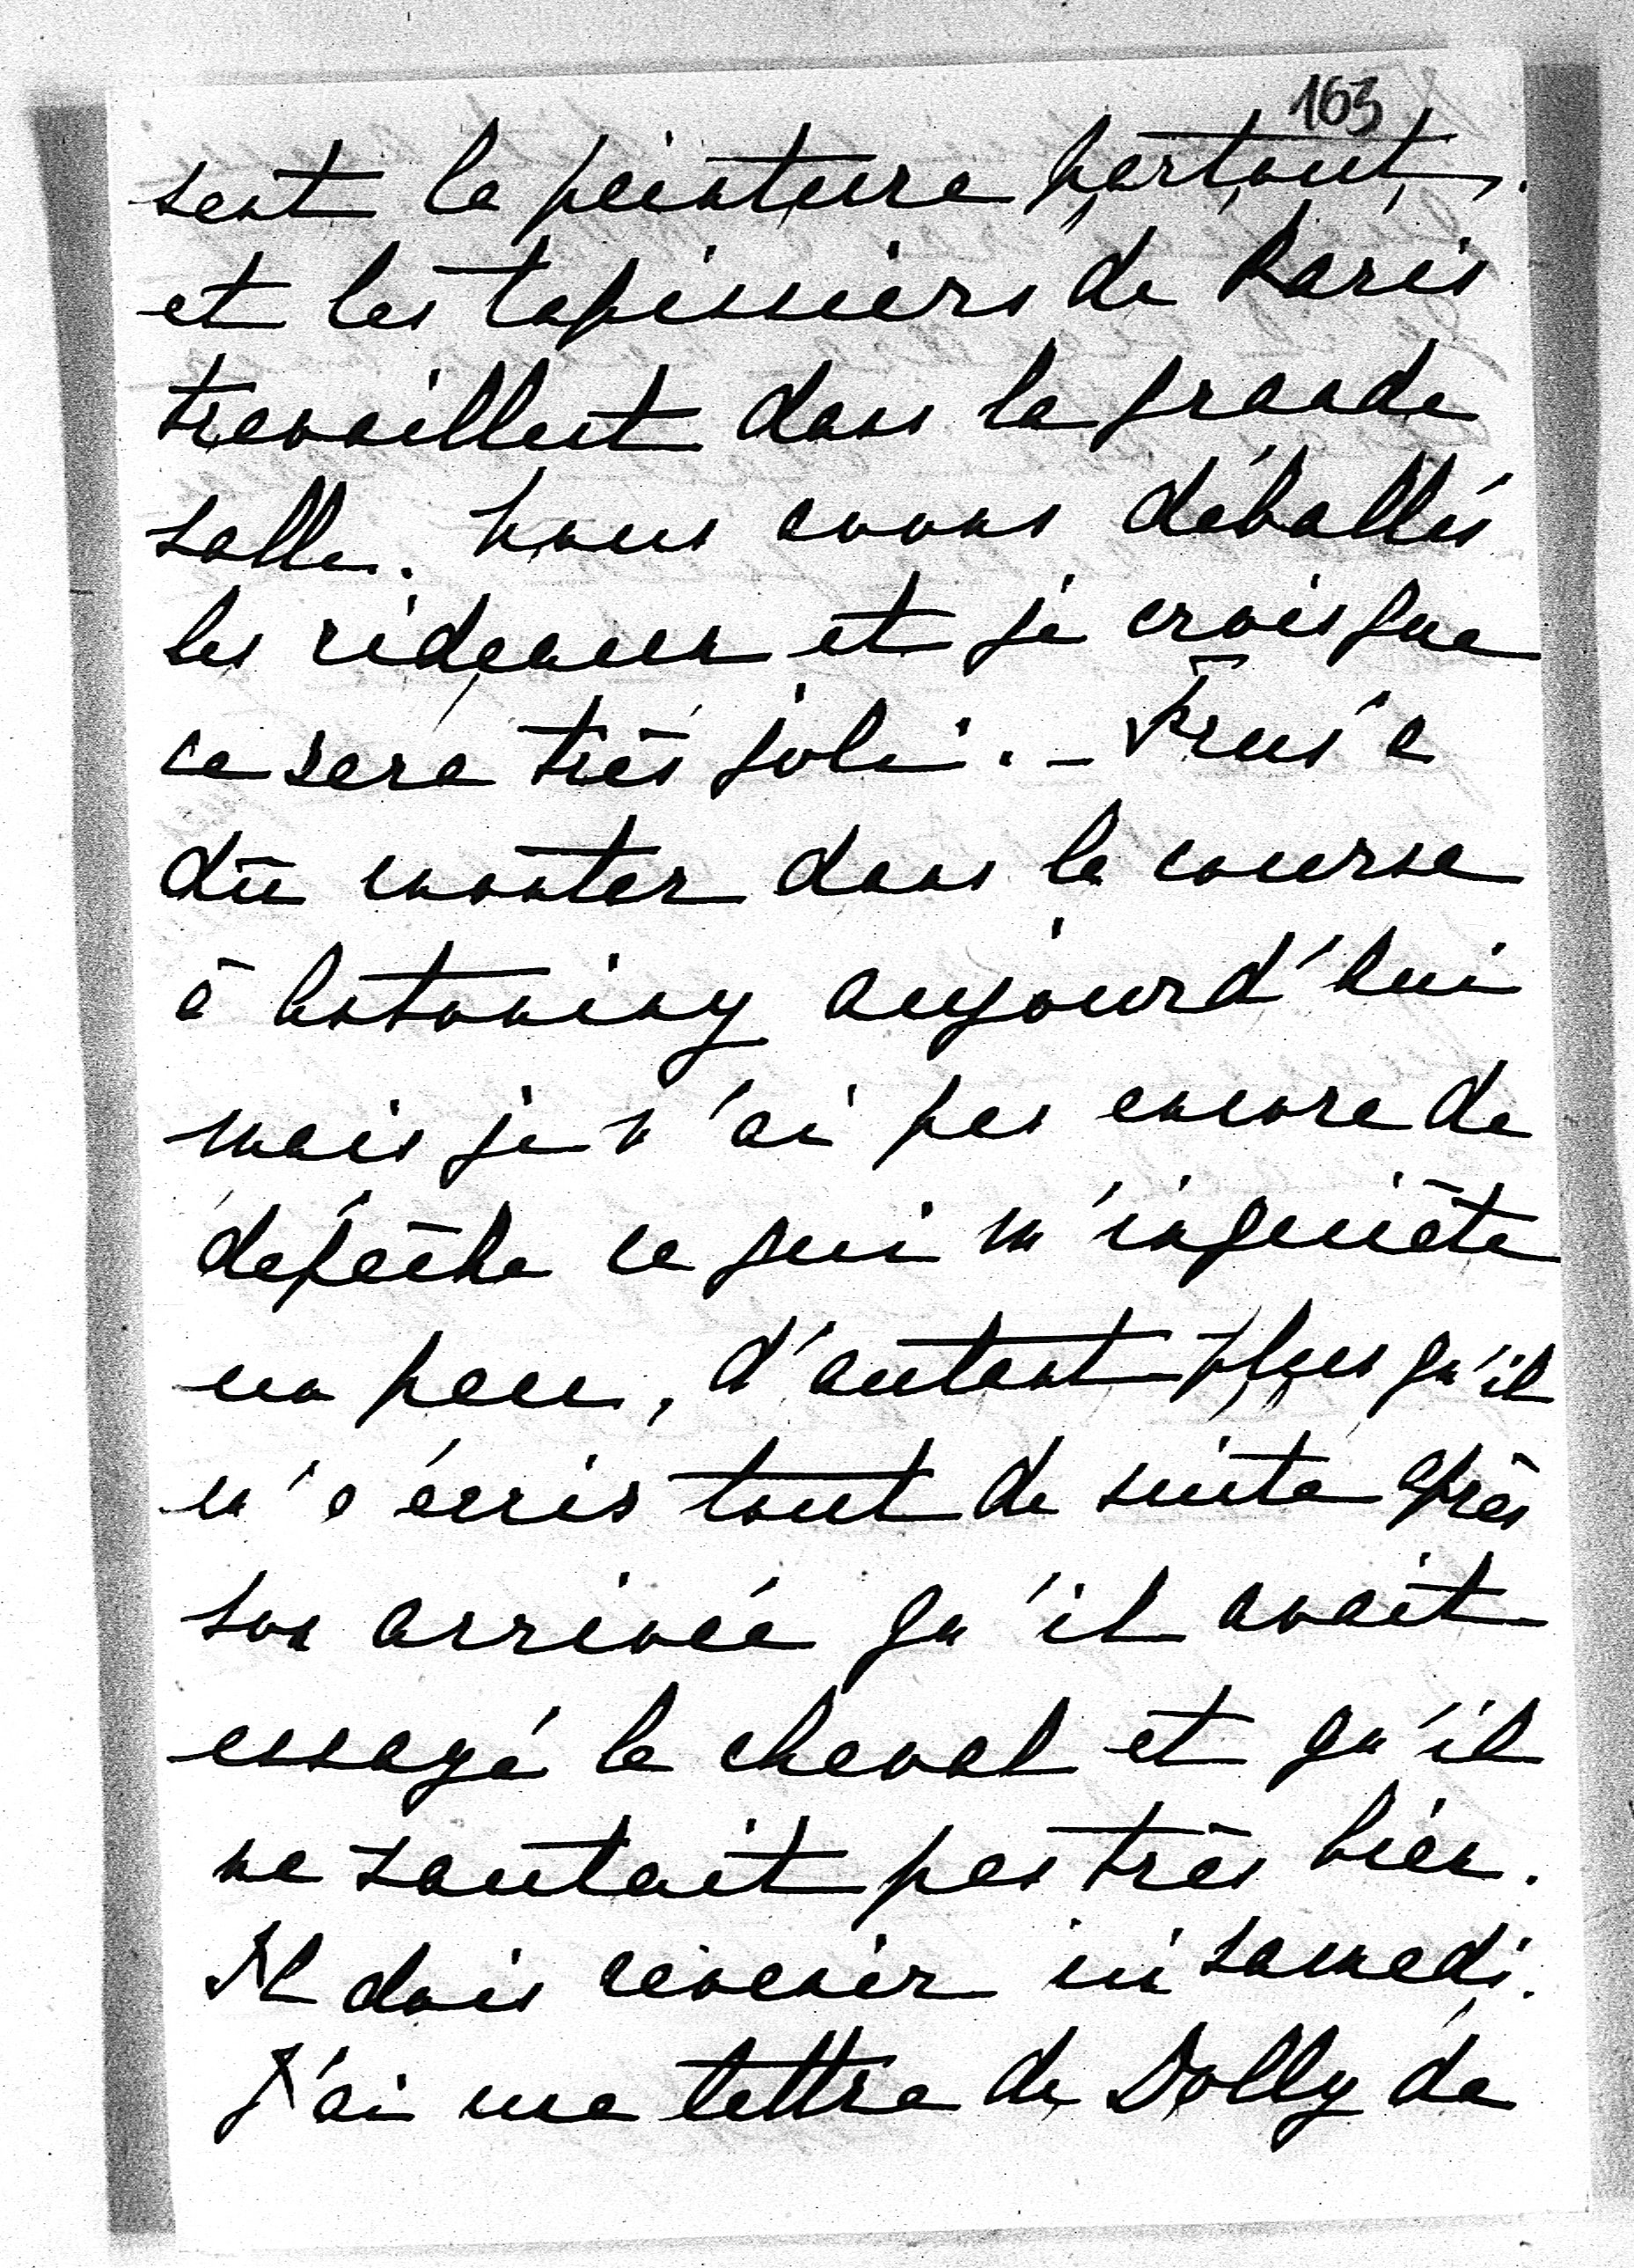 163
sent la peinture partout,
et les tapissiers de Paris
travaillent dans la grande
salle. Nous avons déballés
les rideaux et je crois que
ce sera très joli. - a
dû monter dans la course
à Antoniny aujourd'hui
mais je n'ai pas encore de
dépêche ce qui m'inquiète
un peu, d'autant plus qu'il
m'a écris tout de suite après
son arrivée qu'il avait
essayé le cheval et qu'il
ne sautait pas très bien.
Il dois revenir ici samedi.
J'ai une lettre de Dolly de